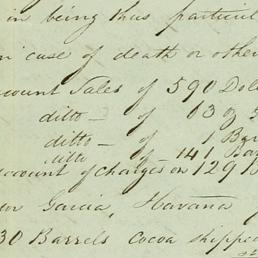 in being thus particul
in case of death or other
ccount Sales of 590 Doll
ditto — of 63
ditto — of 1 Bar
ditto of 141 Ba
ccount of charges on 129
Garcia, Havana
30 Barrels cocoa shipped